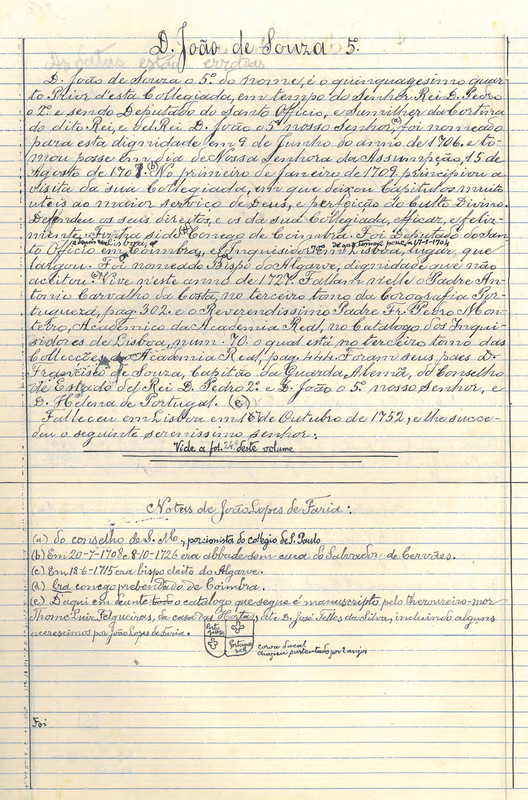 D. João de Souza 5.
As datas estão erradas
D. João de Souza o 5º do nome, é o quinquagesimo quar-
to Prior d'esta Collegiada, em tempo do Senhor Rei D. Pedro
o 2º e sendo Deputado do Santo Officio, e Sumilher da Cortina
do dito Rei, e del Rei D. João o 5º nosso Senhor, (a) foi nomeado
para esta dignidade em 9 de Junho do anno de 1706, e to-
mou posse em dia de Nossa Senhora da Assumpção, 15 de
Agosto de 1707. (b) No primeiro de Janeiro de 1709 principiou a
visita da sua Collegiada, em que deixou Capitulos muito
uteis ao maior serviço de Deus, e perfeição do Culto Divino.
Defendeu os seus direitos, e os da sua Collegiada, efficaz, e feliz-
mente. Tinha sido (d) Conego de Coimbra. Foi Deputado do San-
to Officio em Coimbra, e Inquisidor em Lisboa, lugar que
e depois em Lisboa,
de que tomou posse em 17-1-1704
largou. Foi nomeado (c) Bispo do Algarve, dignidade que não
aceitou. Vive n'este anno de 1727. Fallam nelle o Padre An-
tonio Carvalho da Costa, no terceiro tomo da Corografia Por-
tugueza, pag. 302. e o Reverendissimo Padre Fr. Pedro Mon-
teiro, Academico da Academia Real, no Catalogo dos Inqui-
sidores de Lisboa, num. 70. o qual está no terceiro tomo das
Collecções da Academia Real, pag. 444. Foram seus paes D.
Francisco de Souza, Capitão da Guarda Alemã, do Conselho
de Estado del Rei D. Pedro 2º e D. João o 5º nosso senhor, e
D. Helena de Portugal. (e)
Falleceu em Lisboa em 18 de Outubro de 1752, e lhe succe-
deu o seguinte serenissimo senhor:
Vide a fol. 24 deste volume
Notas de João Lopes de Faria:
(a) do conselho de S. M., porcionista do collegio de S. Paulo
(b) Em 20-7-1708 e 8-10-1726 era abbade sem cura do Salvador de Cervães.
(c) Em 18-6-1715 era bispo eleito do Algarve.
(d) Era conego prebendado de Coimbra.
(e) D'aqui em deante todo o catalogo que segue é manuscripto pelo thesoureiro-mor
Thomé Luiz Felgueiras, da casa das Hortas, até D. José Telles da Silva, incluindo alguns
accrescimos por João Lopes de Faria.
Portugal
coroa ducal
sustentado por 2 anjos
Foi